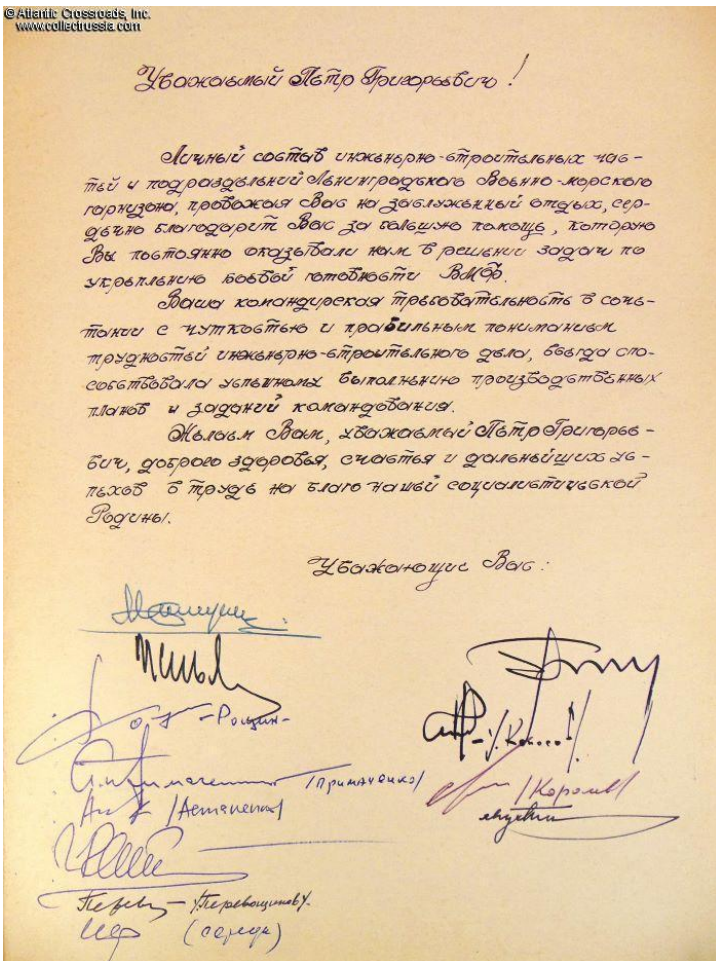 © Atlantic Crossroads, Inc.
www.collectrussia.com
Уважаемый Пётр Григорьевич!
Личный состав инженерно-строительных час-
тей и подразделений Ленинградского Военно-морского
гарнизона, провожая Вас на заслуженный отдых, сер-
дечно благодарит Вас за большую помощь, которую
Вы постоянно оказывали нам в решении задач по
укреплению боевой готовности ВМФ.
Ваша командирская требовательность в соче-
тании с чуткостью и правильным пониманием
трудностей инженерно-строительного дела, всегда спо-
собствовала успешному выполнению производственных
планов и заданий командования.
Желаем Вам, уважаемый Пётр Григорье-
вич, доброго здоровья, счастья и дальнейших ус-
пехов в труде на благо нашей социалистической
Родины.
Уважающие Вас:
-Рощин-
/Примаченко/
/Королев/
/Перевощиков/